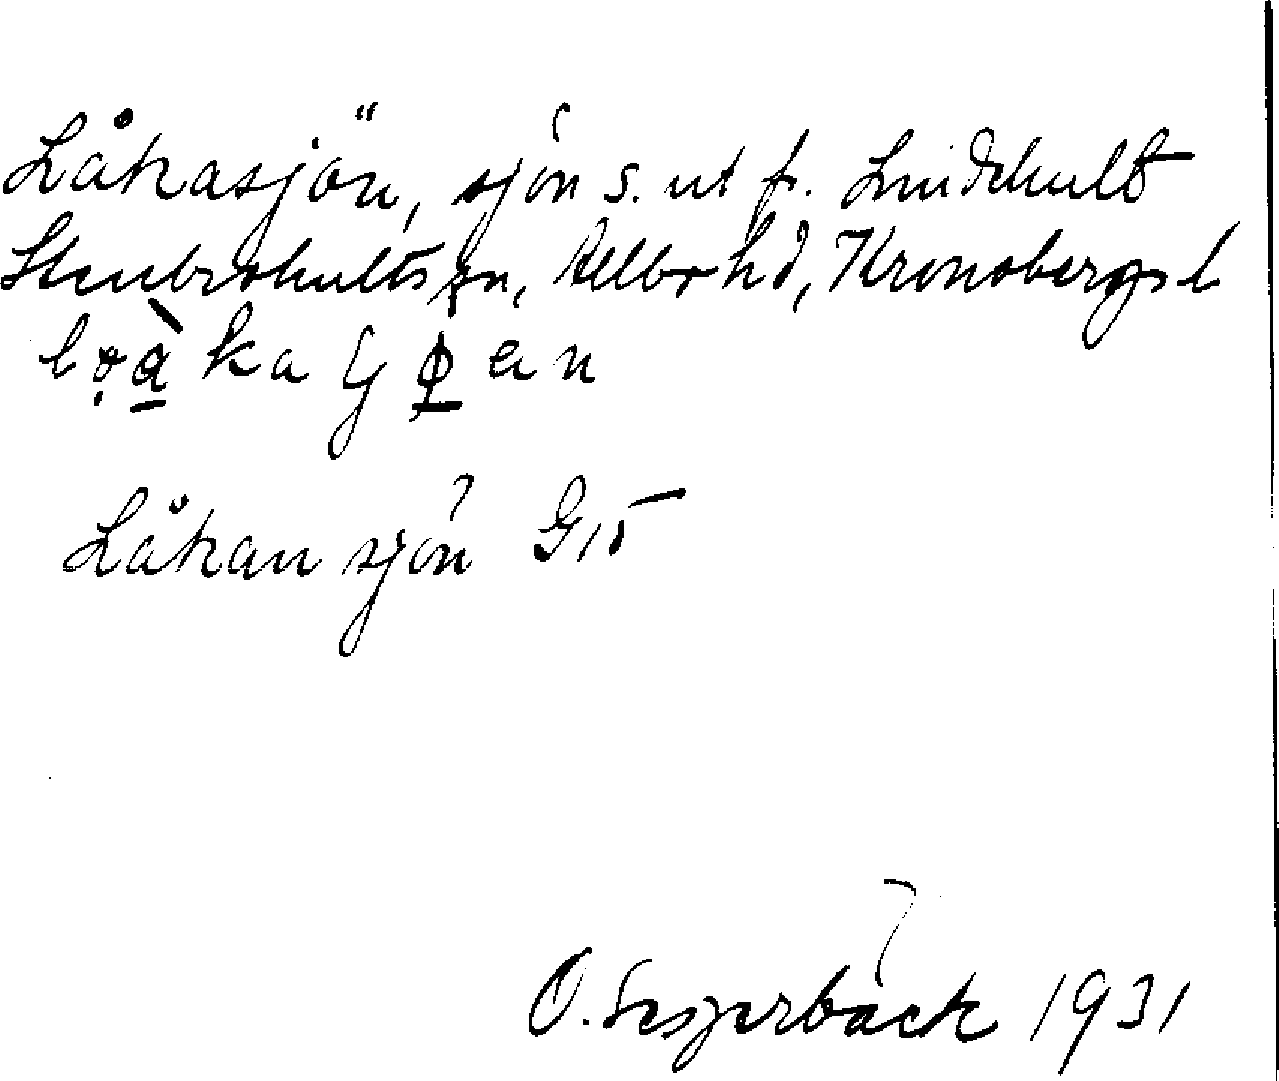 Låkasjön, sjön s. ut fr. Linnehult
Stenbrohults sn, Allbo hd, Kronobergs l
Låkan sjön G15
O. Segerbäck 1931